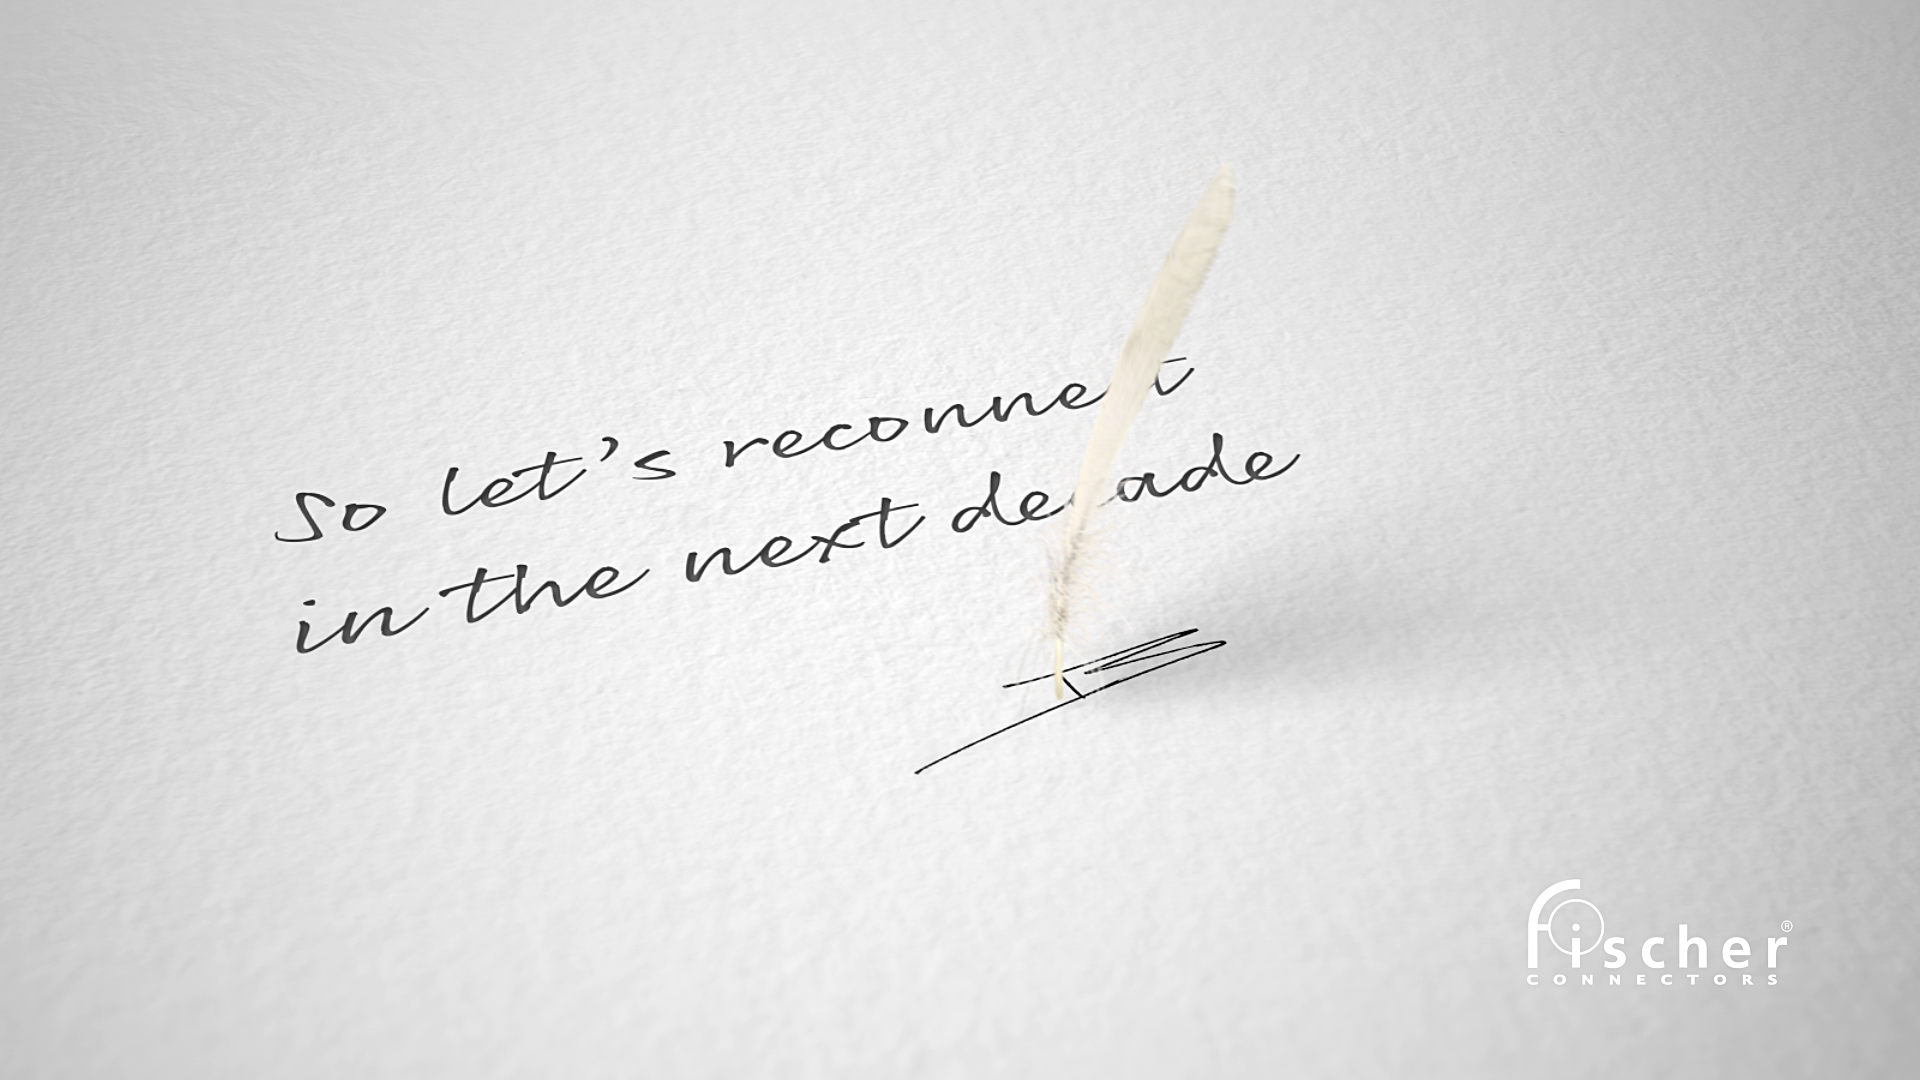 So let's reconnect
in the next decade
fischer®
CONNECTORS